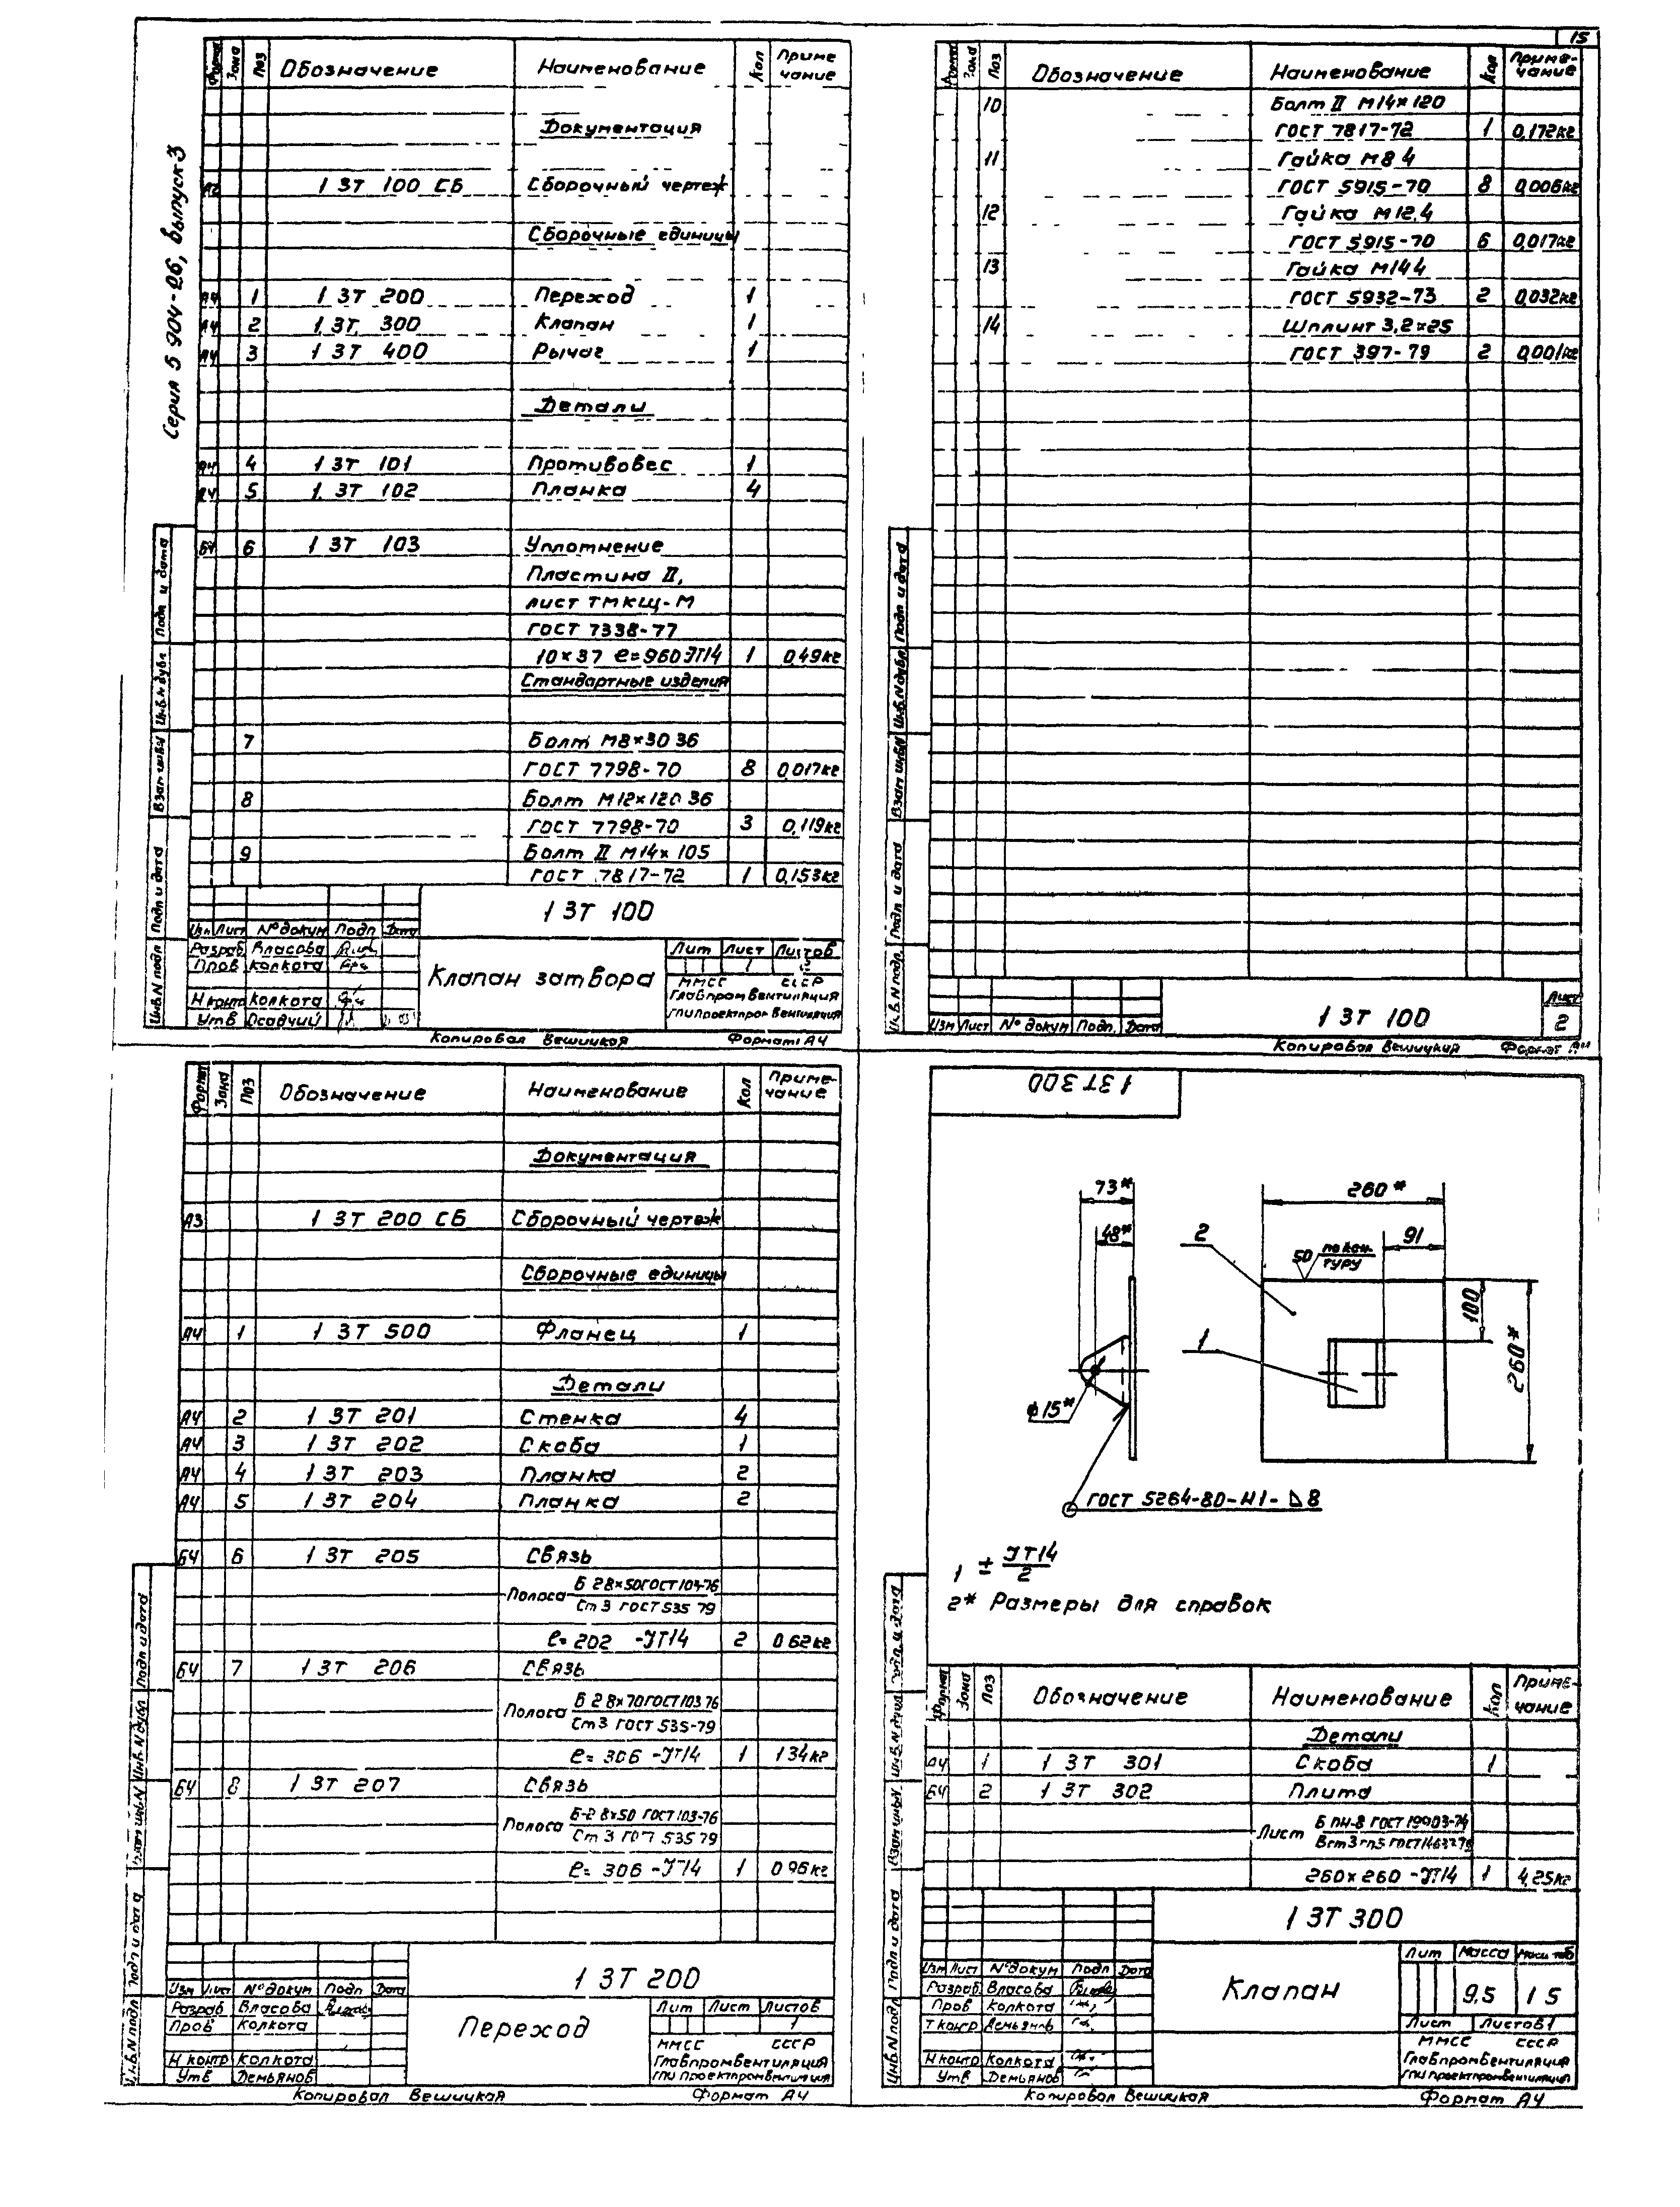 15
Серия 5 904-26, выпуск 3
Формат Зона Поз Обозначение Наименование Кол Приме чание
Документация
А2 1 ЗТ 100 СБ Сборочный чертеж
Сборочные единицы
А4 1 1 ЗТ 200 Переход 1
А4 2 1.ЗТ. 300 Клапан 1
А4 3 1 ЗТ 400 Рычаг 1
Детали
А4 4 1 ЗТ 101 Противовес 1
А4 5 1. ЗТ 102 Планка 4
БЧ 6 1 ЗТ 103 Уплотнение
Пластина II,
лист ТМКЩ-М
ГОСТ 7338-77
10×37 ℓ=960 JT14 1 0,49кг
Стандартные изделия
7 Болт М8×30 36
ГОСТ 7798-70 8 0,017кг
8 Болт М12×120 36
ГОСТ 7798-70 3 0,119кг
9 Болт II М14×105
ГОСТ 7817-72 1 0,153кг
1 ЗТ 100
Изм Лист № докум Подп Дата
Разраб Власова
Пров Колкота
Н контр Колкота
Утв Осадчий
Клапан затвора
Лит Лист Листов
ММСС СССР
Главпромвентиляция
ГПИ Проектпромвентиляция
Инв.N подл Подп и дата Взам инв N Инв.N дубл Подп и дата
Копировал Вешицкая Формат А4
Формат Зона Поз Обозначение Наименование Кол Приме-чание
10 Болт II М14×120
ГОСТ 7817-72 1 0,172кг
11 Гайка М8 4
ГОСТ 5915-70 8 0,006кг
12 Гайка М12.4
ГОСТ 5915-70 6 0,017кг
13 Гайка М14 4
ГОСТ 5932-73 2 0,032кг
14 Шплинт 3,2×25
ГОСТ 397-79 2 0,001кг
Инв.N подл. Подп и дата Взам инв N Инв.N дубл. Подп и дата
Изм Лист № докум Подп. Дата
1 ЗТ 100
Лист
2
Копировал Вешицкая Формат А4
Формат Зона Поз Обозначение Наименование Кол Приме-чание
Документация
А3 1 ЗТ 200 СБ Сборочный чертеж
Сборочные единицы
А4 1 1 ЗТ 500 Фланец 1
Детали
А4 2 1 ЗТ 201 Стенка 4
А4 3 1 ЗТ 202 Скоба 1
А4 4 1 ЗТ 203 Планка 2
А4 5 1 ЗТ 204 Планка 2
БЧ 6 1 ЗТ 205 Связь
Полоса Б 2 8×50 ГОСТ 103-76
Ст 3 ГОСТ 535 79
ℓ= 202 -JT14 2 0 62кг
БЧ 7 1 ЗТ 206 Связь
Полоса Б 2 8×70 ГОСТ 103 76
Ст 3 ГОСТ 535-79
ℓ= 306 -JT14 1 1 34кг
БЧ 8 1 ЗТ 207 Связь
Полоса Б-2 8×50 ГОСТ 103-76
Ст 3 ГОСТ 535 79
ℓ= 306 -JT14 1 0 96кг
1 ЗТ 200
Изм Лист № докум Подп Дата
Разраб Власова
Пров Колкота
Н контр Колкота
Утв Демьянов
Переход
Лит Лист Листов
1
ММСС СССР
Главпромвентиляция
ГПИ Проектпромвентиляция
Инв.N подл Подп и дата Взам инв N Инв.N дубл Подп и дата
Копировал Вешицкая Формат А4
1 ЗТ 300
73*
48*
ϕ15*
260*
91
2
50 по кон-туру
100
260*
1
ГОСТ 5264-80-Н1-⊿8
1 ± JT14/2
2* Размеры для справок
Формат Зона Поз Обозначение Наименование Кол Приме-чание
Детали
А4 1 1 ЗТ 301 Скоба 1
БЧ 2 1 ЗТ 302 Плита
Лист Б ПН-8 ГОСТ 19903-74
Вст3 гп5 ГОСТ 14637-79
260×260 -JT14 1 4,25кг
1 ЗТ 300
Изм Лист № докум Подп Дата
Разраб Власова
Пров Колкота
Т контр Демьянов
Н контр Колкота
Утв Демьянов
Клапан
Лит Масса Масштаб
9,5 1 5
Лист Листов 1
ММСС СССР
Главпромвентиляция
ГПИ Проектпромвентиляция
Инв.N подл Подп и дата Взам инв N Инв.N дубл Подп и дата
Копировал Вешицкая Формат А4